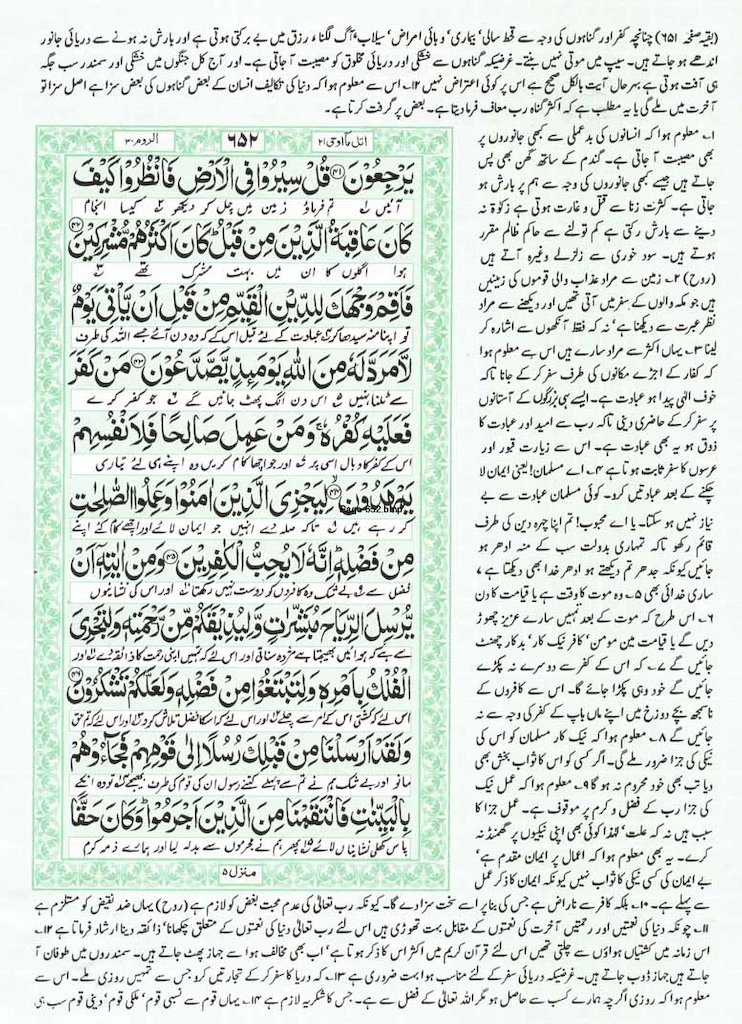 (بقیہ صفحہ ۶۵۱) چنانچہ کفر اور گناہوں کی وجہ سے قحط سالی' بیماری' وبائی امراض' سیلاب' آگ لگنا' رزق میں بے برکتی ہوتی ہے اور بارش نہ ہونے سے دریائی جانور
اندھے ہو جاتے ہیں۔ سیپ میں موتی نہیں بنتے۔ غرضیکہ گناہوں سے خشکی اور دریائی مخلوق کو مصیبت آ جاتی ہے۔ اور آج کل جنگوں میں خشکی اور سمندر سب جگہ
ہی آفت ہوتی ہے بہرحال آیت بالکل صحیح ہے اس پر کوئی اعتراض نہیں ۱۲۔ اس سے معلوم ہوا کہ دنیا کی تکالیف انسان کے بعض گناہوں کی بعض سزا ہے اصل سزا تو
آخرت میں ملے گی یا یہ مطلب ہے کہ اکثر گناہ رب معاف فرما دیتا ہے۔ بعض پر گرفت کرتا ہے۔
اتل ما اوحی ۲۱
۶۵۲
الروم ۳۰
یَرْجِعُوْنَ ﴿۴۱﴾ قُلْ سِیْرُوْا فِی الْاَرْضِ فَانْظُرُوْا كَیْفَ
آئیں تم فرماؤ زمین میں چل کر دیکھو کیسا انجام
كَانَ عَاقِبَةُ الَّذِیْنَ مِنْ قَبْلُ كَانَ اَكْثَرُهُمْ مُّشْرِكِیْنَ ﴿۴۲﴾
ہوا اگلوں کا ان میں بہت مشرک تھے
فَاَقِمْ وَجْهَكَ لِلدِّیْنِ الْقَیِّمِ مِنْ قَبْلِ اَنْ یَّاْتِیَ یَوْمٌ
تو اپنا منہ سیدھا کر عبادت کے لئے قبل اس کے کہ وہ دن آئے جسے اللہ کی طرف
لَّا مَرَدَّ لَهٗ مِنَ اللّٰهِ یَوْمَىِٕذٍ یَّصَّدَّعُوْنَ ﴿۴۳﴾ مَنْ كَفَرَ
سے ٹلنا نہیں اس دن الگ پھٹ جائیں گے جو کفر کرے
فَعَلَیْهِ كُفْرُهٗ وَمَنْ عَمِلَ صَالِحًا فَلِاَنْفُسِهِمْ
اس کے کفر کا وبال اسی پر اور جو اچھا کام کریں وہ اپنے ہی لئے تیاری
یَمْهَدُوْنَ ﴿۴۴﴾ لِیَجْزِیَ الَّذِیْنَ اٰمَنُوْا وَعَمِلُوا الصّٰلِحٰتِ
Page-652.bmp
کر رہے ہیں تاکہ صلہ دے انہیں جو ایمان لائے اور اچھے کام کئے اپنے
مِنْ فَضْلِهٖ اِنَّهٗ لَا یُحِبُّ الْكٰفِرِیْنَ ﴿۴۵﴾ وَمِنْ اٰیٰتِهٖۤ اَنْ
فضل سے بے شک وہ کافروں کو دوست نہیں رکھتا اور اس کی نشانیوں
یُّرْسِلَ الرِّیَاحَ مُبَشِّرٰتٍ وَّلِیُذِیْقَكُمْ مِّنْ رَّحْمَتِهٖ وَلِتَجْرِیَ
سے ہے کہ ہوائیں بھیجتا ہے مژدہ سناتی اور اس لئے کہ تمہیں اپنی رحمت کا ذائقہ دے اور
الْفُلْكُ بِاَمْرِهٖ وَلِتَبْتَغُوْا مِنْ فَضْلِهٖ وَلَعَلَّكُمْ تَشْكُرُوْنَ ﴿۴۶﴾
اس لئے کہ کشتی اس کے حکم سے چلے اور اس لئے کہ اس کا فضل تلاش کرو اور اس لئے کہ تم حق
وَلَقَدْ اَرْسَلْنَا مِنْ قَبْلِكَ رُسُلًا اِلٰی قَوْمِهِمْ فَجَآءُوْهُمْ
مانو اور بے شک ہم نے تم سے پہلے کتنے رسول ان کی قوم کی طرف بھیجے تو وہ انکے
بِالْبَیِّنٰتِ فَانْتَقَمْنَا مِنَ الَّذِیْنَ اَجْرَمُوْا وَكَانَ حَقًّا
پاس کھلی نشانیاں لائے پھر ہم نے مجرموں سے بدلہ لیا اور ہمارے ذمہ کرم
منزل ۵
۱۔ معلوم ہوا کہ انسانوں کی بدعملی سے کبھی جانوروں پر
بھی مصیبت آ جاتی ہے۔ گندم کے ساتھ گھن بھی پس
جاتے ہیں جیسے کبھی جانوروں کی وجہ سے ہم پر بارش ہو
جاتی ہے۔ کثرت زنا سے قتل و غارت ہوتی ہے زکوۃ نہ
دینے سے بارش رکتی ہے کم تولنے سے حاکم ظالم مقرر
ہوتے ہیں۔ سود خوری سے زلزلے وغیرہ آتے ہیں
(روح) ۲۔ زمین سے مراد عذاب والی قوموں کی زمینیں
ہیں جو مکہ والوں کے سفر میں آتی تھیں اور دیکھنے سے مراد
نظر عبرت سے دیکھنا ہے' نہ کہ فقط آنکھوں سے اشارہ کر
لینا ۳۔ یہاں اکثر سے مراد سارے ہیں اس سے معلوم ہوا
کہ کفار کے اجڑے مکانوں کی طرف سفر کر کے جانا تاکہ
خوف الہی پیدا ہو عبادت ہے۔ ایسے ہی بزرگوں کے آستانوں
پر سفر کر کے حاضری دینی تاکہ رب سے امید اور عبادت کا
ذوق ہو یہ بھی عبادت ہے۔ اس سے زیارت قبور اور
عرسوں کا سفر ثابت ہوتا ہے ۴۔ اے مسلمان! یعنی ایمان لا
چکنے کے بعد عبادتیں کرو۔ کوئی مسلمان عبادت سے بے
نیاز نہیں ہو سکتا۔ یا اے محبوب! تم اپنا چہرہ دین کی طرف
قائم رکھو تاکہ تمہاری بدولت سب کے منہ ادھر ہو
جائیں کیونکہ جدھر تم دیکھتے ہو ادھر خدا بھی دیکھتا ہے
ساری خدائی بھی ۵۔ وہ موت کا وقت ہے یا قیامت کا دن
۶۔ اس طرح کہ موت کے بعد تمہیں سارے عزیز چھوڑ
دیں گے یا قیامت میں مومن' کافر نیک کار' بدکار چھنٹ
جائیں گے ۷۔ کہ اس کے کفر سے دوسرے نہ پکڑے
جائیں گے خود وہی پکڑا جائے گا۔ اس سے کافروں کے
ناسمجھ بچے دوزخ میں اپنے ماں باپ کے کفر کی وجہ سے نہ
جائیں گے ۸۔ معلوم ہوا کہ نیک کار مسلمان کو اس کی
نیکی کی جزا ضرور ملے گی۔ اگر کسی کو اس کا ثواب بخش بھی
دیا تب بھی خود محروم نہ ہو گا ۹۔ معلوم ہوا کہ عمل نیک
کی جزا رب کے فضل و کرم پر موقوف ہے۔ عمل جزا کا
سبب ہیں نہ کہ علت' لہذا کوئی بھی اپنی نیکیوں پر گھمنڈ نہ
کرے۔ یہ بھی معلوم ہوا کہ اعمال پر ایمان مقدم ہے'
بے ایمان کی کسی نیکی کا ثواب نہیں کیونکہ ایمان کا ذکر عمل
سے پہلے ہے۔ ۱۰۔ بلکہ کافر سے ناراض ہے جس کی بنا پر اسے سخت سزا دے گا۔ کیونکہ رب تعالیٰ کی عدم محبت بغض کو لازم ہے (روح) یہاں ضد نقیض کو مستلزم ہے
۱۱۔ چونکہ دنیا کی نعمتیں اور رحمتیں آخرت کی نعمتوں کے مقابل بہت تھوڑی ہیں اس لئے رب تعالیٰ دنیا کی نعمتوں کے متعلق چکھانا' ذائقہ دینا ارشاد فرماتا ہے ۱۲۔
اس زمانہ میں کشتیاں ہواؤں سے چلتی تھیں اس لئے قرآن کریم میں اکثر اس کا ذکر ہوتا ہے' اب بھی مخالف ہوا سے جہاز پھٹ جاتے ہیں۔ سمندروں میں طوفان آ
جاتے ہیں جہاز ڈوب جاتے ہیں۔ غرضیکہ دریائی سفر کے لئے مناسب ہوا بہت ضروری ہے ۱۳۔ کہ دریا کا سفر کر کے تجارتیں کرو جس سے تمہیں روزی ملے۔ اس سے
معلوم ہوا کہ روزی اگرچہ ہمارے کسب سے حاصل ہو مگر اللہ تعالیٰ کے فضل سے ہے۔ جس کا شکریہ لازم ہے ۱۴۔ یہاں قوم سے نسبی قوم' ملکی قوم' دینی قوم سب ہی